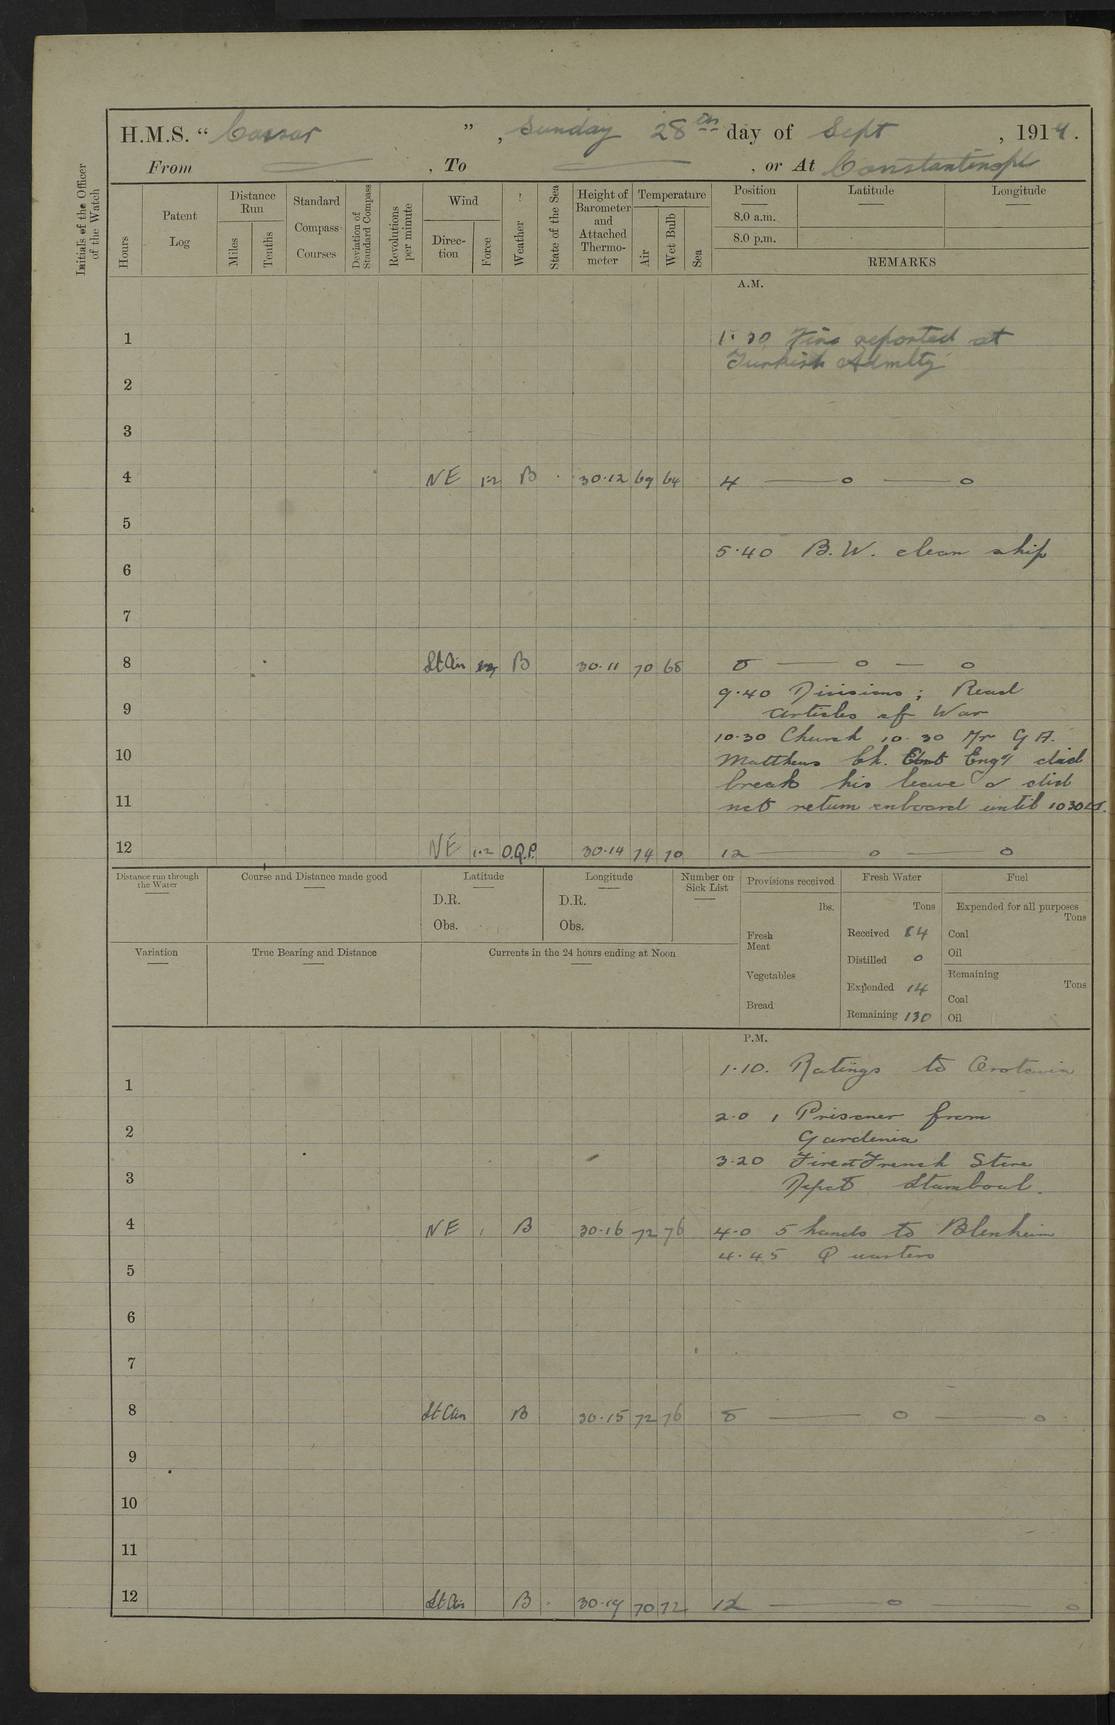 H.M.S. “ Caesar ”, Sunday 28th day of Sept, 191
From — , To — , or At Constantinople
Initials of the Officer of the Watch
Hours
Patent Log
Distance Run
Miles
Tenths
Standard Compass Courses
Deviation of Standard Compass
Revolutions per minute
Wind
Direction
Force
Weather
State of the Sea
Height of Barometer and Attached Thermometer
Temperature
Air
Wet Bulb
Sea
Position
Latitude
Longitude
8.0 a.m.
8.0 p.m.
REMARKS
A.M.
1 1.30 Fire reported at
Turkish Admlty
2
3
4 NE 1-2 B 30.12 69 64 4 — o — o
5
5.40 B.W. clean ship
6
7
8 Lt Airs B 30.11 70 68 8 — o — o
9.40 Divisions ; Read
9 Articles of War
10.30 Church 10.30 Mr G A.
10 Matthews Ch. Engr did
break his leave & did
11 not return onboard until 1030
12 NE 1.2 O.Q.P. 30.14 74 70 12 — o — o
Distance run through the Water
Course and Distance made good
Latitude
D.R.
Obs.
Longitude
D.R.
Obs.
Number on Sick List
Provisions received
lbs.
Fresh Meat
Vegetables
Bread
Fresh Water
Tons
Received 84
Distilled 0
Expended 14
Remaining 130
Fuel
Expended for all purposes
Tons
Coal
Oil
Remaining
Tons
Coal
Oil
Variation
True Bearing and Distance
Currents in the 24 hours ending at Noon
P.M.
1.10. Ratings to Orotavia
1
2.0 1 Prisoner from
2 Gardenia
3.20 Fire at French Store
3 Depot Stamboul.
4 NE 1 B 30.16 72 76 4.0 5 hands to Blenheim
4.45 Quarters
5
6
7
8 Lt Airs B 30.15 72 76 8 — o — o
9
10
11
12 Lt Airs B 30.14 70 72 12 — o — o